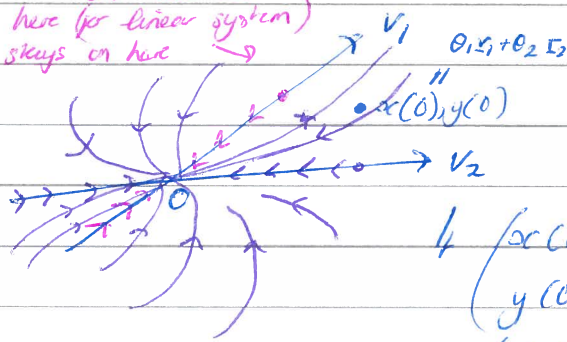 here (for linear system)
stays on here
V₁
θ₁v₁ + θ₂v₂
||
x(0), y(0)
V₂
O
(x(
y(0